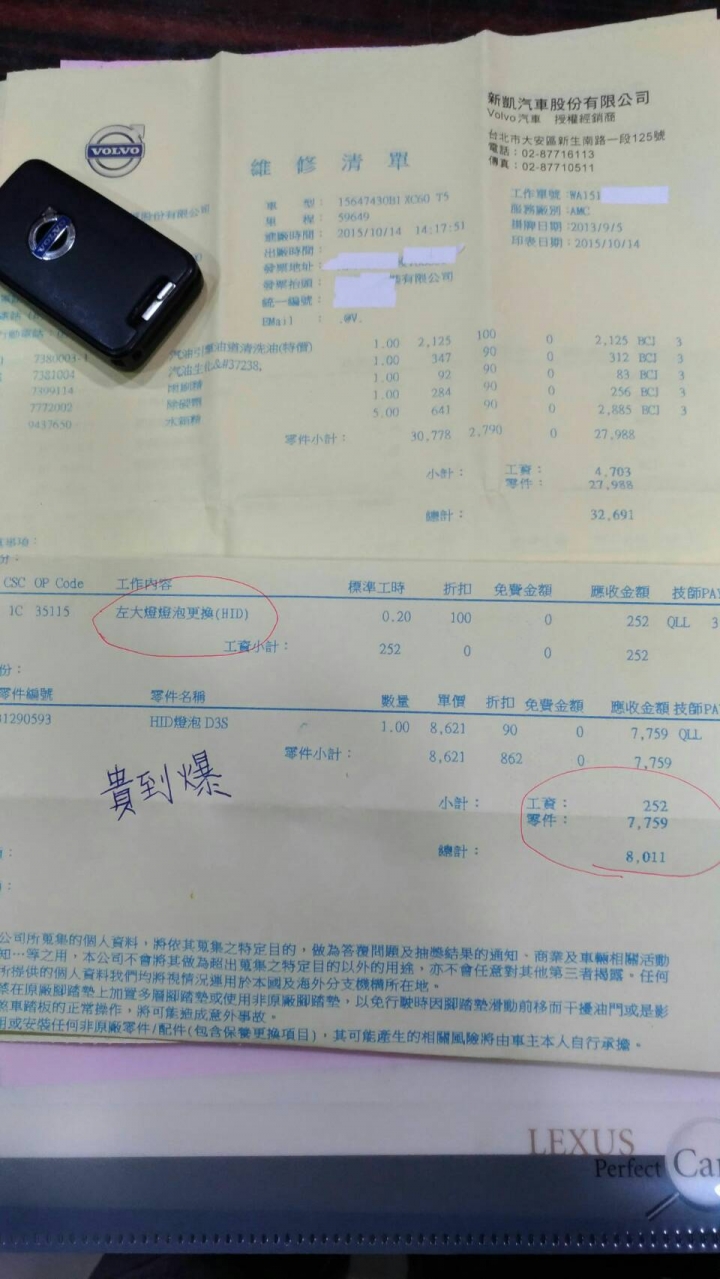 VOLVO
新凱汽車股份有限公司
Volvo汽車 授權經銷商
台北市大安區新生南路一段125號
電話：02-87716113
傳真：02-87710511
維修清單
工作單號：WA151
服務廠別：AMC
掛牌日期：2013/9/5
印表日期：2015/10/14
車 型：15647430B1 XC60 T5
里 程：59649
進廠時間：2015/10/14 14:17:51
出廠時間：
發票地址：
發票抬頭： 有限公司
統一編號：
EMail ：.@V.
股份有限公司
7380003-1 汽油引擎油道清洗油(特價) 1.00 2,125 100 0 2,125 BCJ 3
7321004 汽油生化&#37238; 1.00 347 90 0 312 BCJ 3
7399114 1.00 92 90 0 83 BCJ 3
7772002 1.00 284 90 0 256 BCJ 3
9437650 水箱精 5.00 641 90 0 2,885 BCJ 3
零件小計： 30,778 2,790 0 27,988
小計： 工資： 4,703
零件： 27,988
總計： 32,691
CSC OP Code 工作內容 標準工時 折扣 免費金額 應收金額 技師PAY
1C 35115 左大燈燈泡更換(HID) 0.20 100 0 252 QLL 3
工資小計： 252 0 0 252
份：
零件編號 零件名稱 數量 單價 折扣 免費金額 應收金額 技師PAY
31290593 HID燈泡 D3S 1.00 8,621 90 0 7,759 QLL
零件小計： 8,621 862 0 7,759
貴到爆
小計： 工資： 252
零件： 7,759
總計： 8,011
公司所蒐集的個人資料，將依其蒐集之特定目的，做為答覆問題及抽獎結果的通知、商業及車輛相關活動
知…等之用，本公司不會將其做為超出蒐集之特定目的以外的用途，亦不會任意對其他第三者揭露。任何
所提供的個人資料我們均將視情況運用於本國及海外分支機構所在地。
禁在原廠腳踏墊上加置多層腳踏墊或使用非原廠腳踏墊，以免行駛時因腳踏墊滑動前移而干擾油門或是影
煞車踏板的正常操作，將可能造成意外事故。
用或安裝任何非原廠零件/配件(包含保養更換項目)，其可能產生的相關風險將由車主本人自行承擔。
LEXUS
Perfect Car